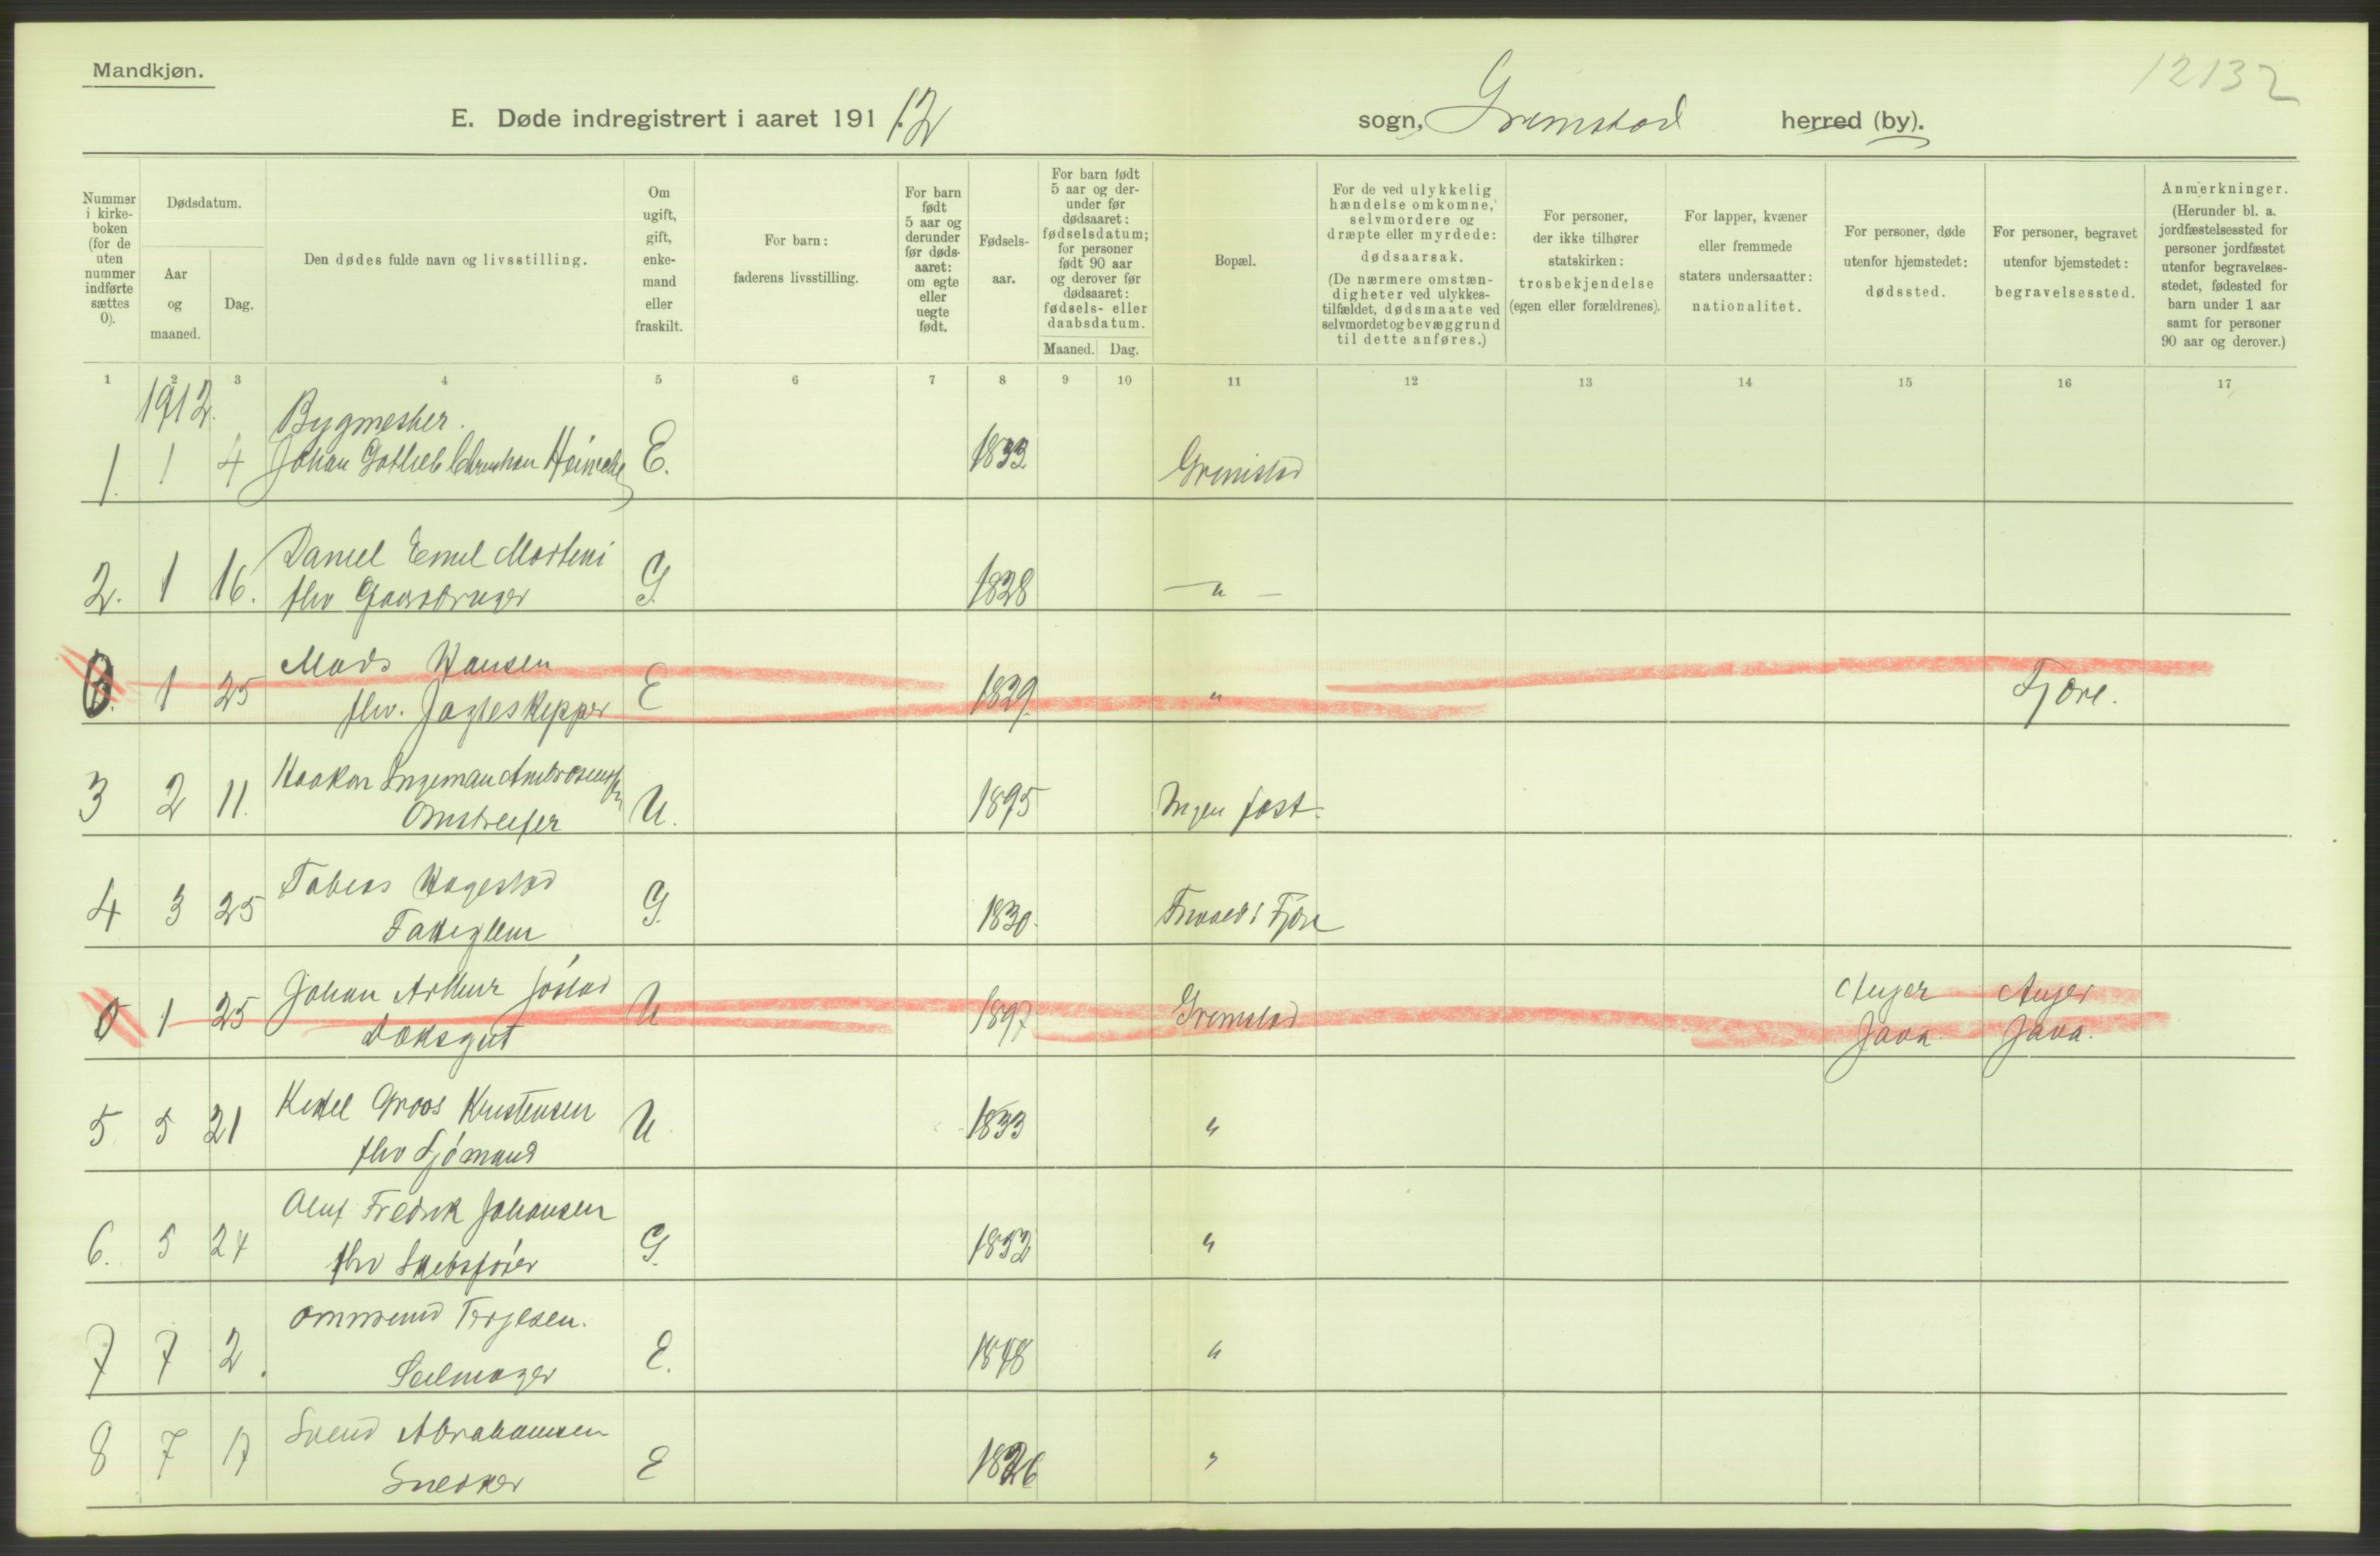 Mandkjøn.
12132
E. Døde indregistrert i aaret 1912
sogn, Grimstad herred (by).
Nummer i kirke-boken (for de uten nummer indførte sættes 0).
Dødsdatum.
Aar og maaned.
Dag.
Den dødes fulde navn og livsstilling.
Om ugift, gift, enke-mand eller fraskilt.
For barn: faderens livsstilling.
For barn født 5 aar og derunder før døds-aaret: om egte eller uegte født.
Fødsels-aar.
For barn født 5 aar og der-under før dødsaaret: fødselsdatum; for personer født 90 aar og derover før dødsaaret: fødsels- eller daabsdatum.
Maaned. Dag.
Bopæl.
For de ved ulykkelig hændelse omkomne, selvmordere og dræpte eller myrdede: dødsaarsak. (De nærmere omstæn-digheter ved ulykkes-tilfældet, dødsmaate ved selvmordet og bevæggrund til dette anføres.)
For personer, der ikke tilhører statskirken: trosbekjendelse (egen eller forældrenes).
For lapper, kvæner eller fremmede staters undersaatter: nationalitet.
For personer, døde utenfor hjemstedet: dødssted.
For personer, begravet utenfor bjemstedet: begravelsessted.
Anmerkninger. (Herunder bl. a. jordfæstelsessted for personer jordfæstet utenfor begravelses-stedet, fødested for barn under 1 aar samt for personer 90 aar og derover.)
1 2 3 4 5 6 7 8 9 10 11 12 13 14 15 16 17
1912. Bygmester.
1. 1 4 Johan Gotlieb Christian Heinecke E. 1833 Grimstad
Daniel Emil Morteni
2. 1 16. fhv Gaardbruger G. 1828 — " —
Mads Hansen
0. 1 25 fhv. Jagteskipper E 1829. " Fjære.
Haakon Ingeman Ambrosensen
3 2 11. Omstreifer U. 1895 Ingen fast.
Tobias Hagestad
4 3 25 Faktiglem G. 1830. i Fjære
Johan Arthur Jóstad Anjer Anjer
0 1 25 Dæksgut U 1897 Grimstad Java. Java.
Kittel Groos Kristensen
5. 5 21 fhv Sjómand U 1833 "
Oluf Fredrik Johansen
6. 5 24 fhv Skibsfóier G. 1852 "
Ommund Terjesen.
7 7 2. Seilmager E. 1848 "
Svend Abrahamsen
8 7 17 Snedker E 1826 "